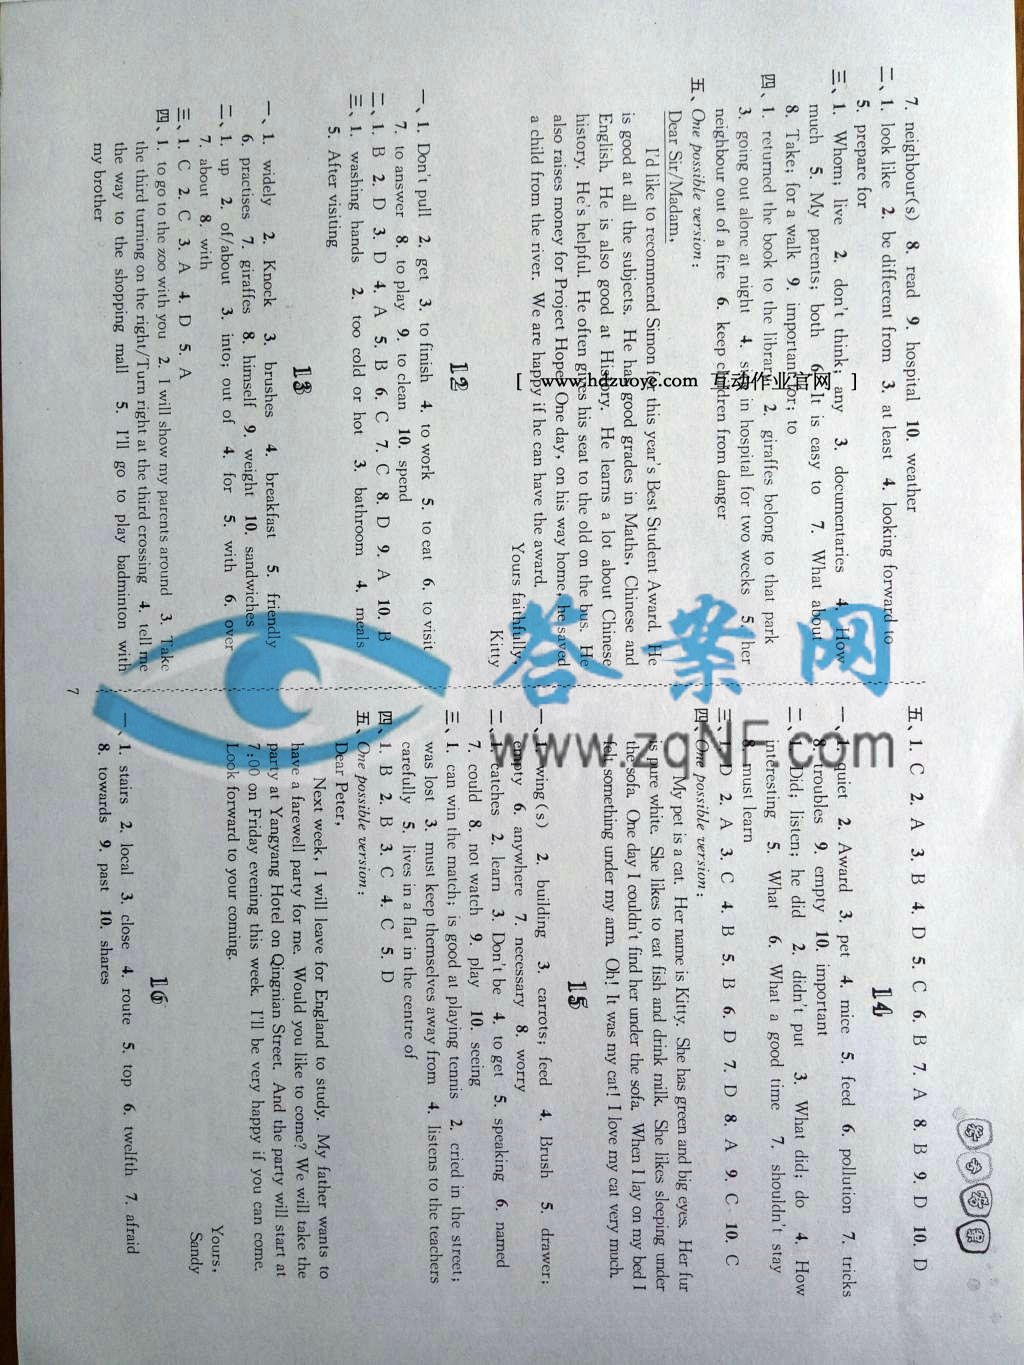 7. neighbour(s) 8. read 9. hospital 10. weather
二、1. look like 2. be different from 3. at least 4. looking forward to
5. prepare for
三、1. Whom; live 2. don't think; any 3. documentaries 4. How
much 5. My parents; both 6. It is easy to 7. What about
8. Take; for a walk 9. important for; to
四、1. returned the book to the library 2. giraffes belong to that park
3. going out alone at night 4. stay in hospital for two weeks 5. her
neighbour out of a fire 6. keep children from danger
五、One possible version:
Dear Sir/Madam,
I'd like to recommend Simon for this year's Best Student Award. He
is good at all the subjects. He has good grades in Maths, Chinese and
English. He is also good at History. He learns a lot about Chinese
history. He's helpful. He often gives his seat to the old on the bus. He
also raises money for Project Hope. One day, on his way home, he saved
a child from the river. We are happy if he can have the award.
Yours faithfully,
Kitty
12
一、1. Don't pull 2. get 3. to finish 4. to work 5. to eat 6. to visit
7. to answer 8. to play 9. to clean 10. spend
二、1. B 2. D 3. D 4. A 5. B 6. C 7. C 8. D 9. A 10. B
三、1. washing hands 2. too cold or hot 3. bathroom 4. meals
5. After visiting
13
一、1. widely 2. Knock 3. brushes 4. breakfast 5. friendly
6. practises 7. giraffes 8. himself 9. weight 10. sandwiches
二、1. up 2. of/about 3. into; out of 4. for 5. with 6. over
7. about 8. with
三、1. C 2. C 3. A 4. D 5. A
四、1. to go to the zoo with you 2. I will show my parents around 3. Take
the third turning on the right/Turn right at the third crossing 4. tell me
the way to the shopping mall 5. I'll go to play badminton with
my brother
7
五、1. C 2. A 3. B 4. D 5. C 6. B 7. A 8. B 9. D 10. D
14
一、1. quiet 2. Award 3. pet 4. mice 5. feed 6. pollution 7. tricks
8. troubles 9. empty 10. important
二、1. Did; listen; he did 2. didn't put 3. What did; do 4. How
interesting 5. What 6. What a good time 7. shouldn't stay
8. must learn
三、1. D 2. A 3. C 4. B 5. B 6. D 7. D 8. A 9. C 10. C
四、One possible version:
My pet is a cat. Her name is Kitty. She has green and big eyes. Her fur
is pure white. She likes to eat fish and drink milk. She likes sleeping under
the sofa. One day I couldn't find her under the sofa. When I lay on my bed I
felt something under my arm. Oh! It was my cat! I love my cat very much.
15
一、1. wing(s) 2. building 3. carrots; feed 4. Brush 5. drawer;
empty 6. anywhere 7. necessary 8. worry
二、1. catches 2. learn 3. Don't be 4. to get 5. speaking 6. named
7. could 8. not watch 9. play 10. seeing
三、1. can win the match; is good at playing tennis 2. cried in the street;
was lost 3. must keep themselves away from 4. listens to the teachers
carefully 5. lives in a flat in the centre of
四、1. B 2. B 3. C 4. C 5. D
五、One possible version:
Dear Peter,
Next week, I will leave for England to study. My father wants to
have a farewell party for me. Would you like to come? We will take the
party at Yangyang Hotel on Qingnian Street. And the party will start at
7:00 on Friday evening this week. I'll be very happy if you can come.
Look forward to your coming.
Yours,
Sandy
16
一、1. stairs 2. local 3. close 4. route 5. top 6. twelfth 7. afraid
8. towards 9. past 10. shares
[ www.hdzuoye.com 互动作业官网 ]
答案网
www.zqNF.com